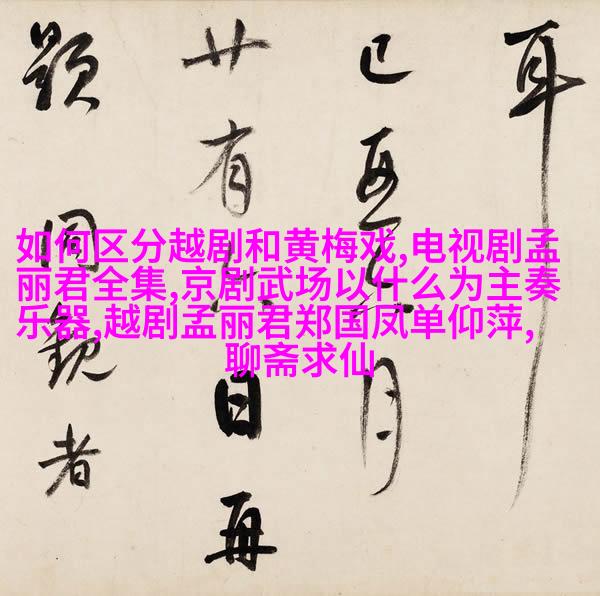 如何区分越剧和黄梅戏,电视剧孟
丽君全集,京剧武场以什么为主奏
乐器,越剧孟丽君郑国凤单仰萍,
聊斋求仙
耳
已月
廿有日再
題同觀者